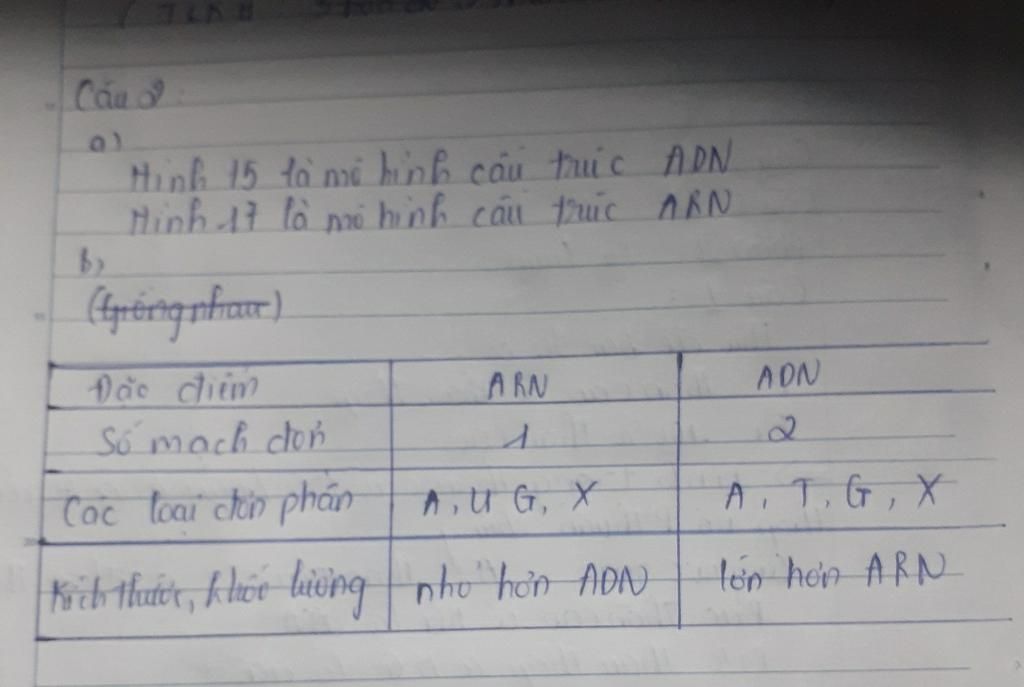 Câu 2
a)
Hình 15 là mô hình cấu trúc ADN
Hình 17 là mô hình cấu trúc ARN
b,
(giống nhau)
Đặc điểm ARN ADN
Số mạch đơn 1 2
Các loại đơn phân A, U G, X A, T, G, X
Kích thước, khối lượng nhỏ hơn ADN lớn hơn ARN